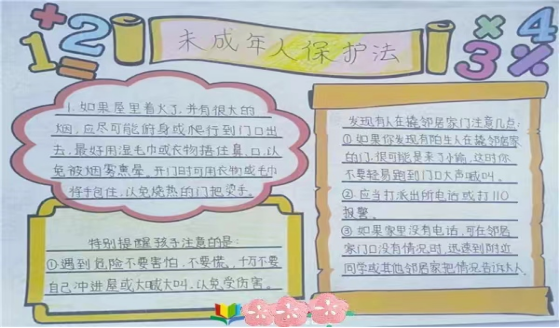 1 2
未成年人保护法
3 4
1.如果屋里着火了,并有很大的
烟,应尽可能俯身或爬行到门口出
去,最好用湿毛巾或衣物捂住鼻、口,以
免被烟雾熏晕。开门时可用衣物或毛巾
将手包住,以免烧热的门把烫手。
特别提醒孩子注意的是:
①遇到危险不要害怕,不要慌,千万不要
自己冲进屋或大喊大叫,以免受伤害。
发现有人在撬邻居家门注意几点:
①如果你发现有陌生人在撬邻居家
的门,很可能是来了小偷,这时你
不要轻易跑到门口大声喊叫。
②应当打派出所电话或打110
报警。
③如果家里没有电话,可在邻居
家门口没有情况时,迅速到附近
同学或其他邻居家把情况告诉大人